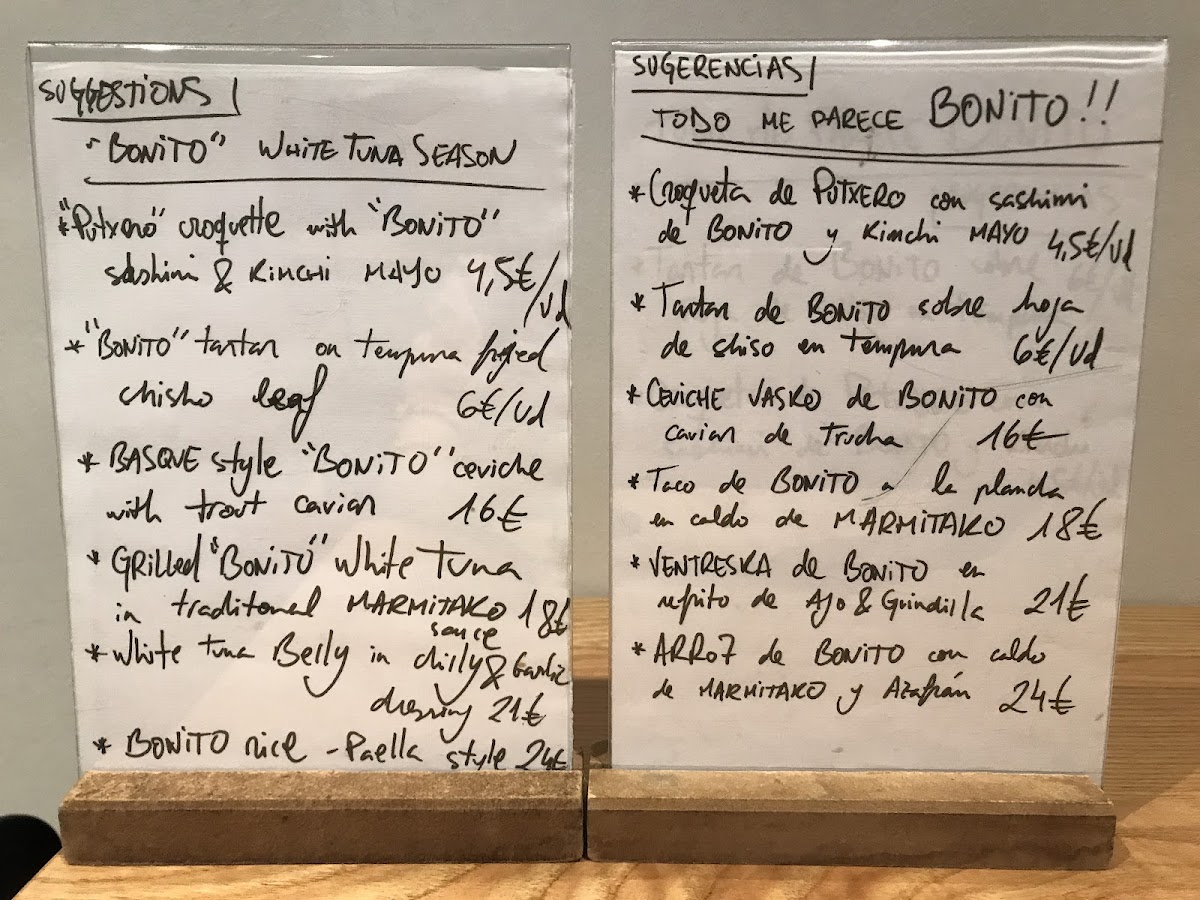 SUGGESTIONS/
"BONITO" WHITE TUNA SEASON
*"PUTXERO" croquette with "BONITO"
sashimi & KIMCHI MAYO 4,5€/Ud
*"BONITO" tartar on tempura fried
chisho leaf 6€/Ud
* BASQUE style "BONITO" ceviche
with trout caviar 16€
* GRilled "BONITO" White Tuna
in traditonal MARMITAKO 18€
sauce
* White tuna Belly in chilly & Garlic
dressing 21€
* BONITO rice - Paella style 24€
SUGERENCIAS/
TODO ME PARECE BONITO!!
* Croqueta de PUTXERO con sashimi
de BONITO y Kimchi MAYO 4,5€/Ud
* Tartar de BONITO sobre hoja
de shiso en tempura 6€/Ud
* CEVICHE VASKO de BONITO con
caviar de Trucha 16€
* Taco de BONITO a la plancha
en caldo de MARMITAKO 18€
* VENTRESKA de BONITO en
refrito de Ajo & Guindilla 21€
* ARROZ de BONITO con caldo
de MARMITAKO y Azafrán 24€